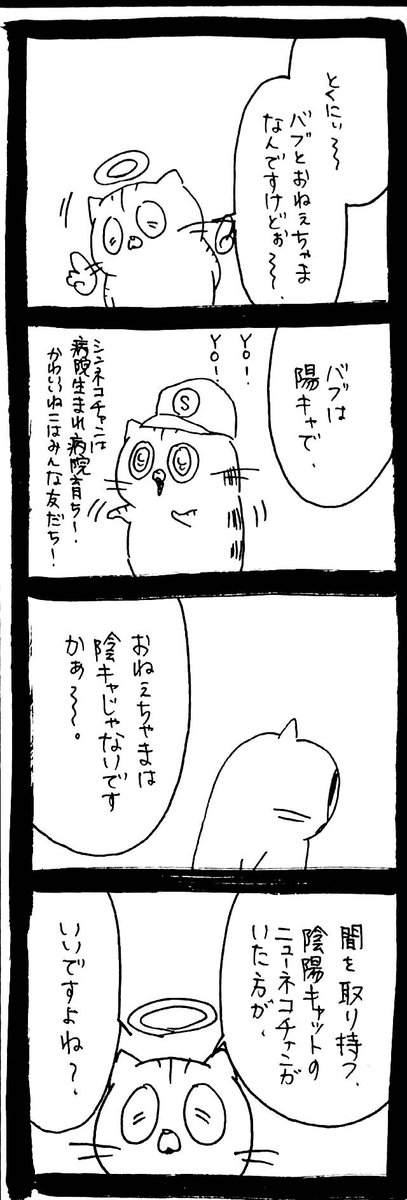 とくにぃ〜〜
バブとおねぇちゃま
なんですけどぉ〜〜、
バブは
陽キャで、
YO!
YO!
S
シンネコチャンは
病院生まれ病院育ち!
かわいいねこはみんな友だち!
おねぇちゃまは
陰キャじゃないです
かぁ〜〜。
間を取り持つ、
陰陽キャットの
ニューネコチャンが
いた方が、
いいですよね?